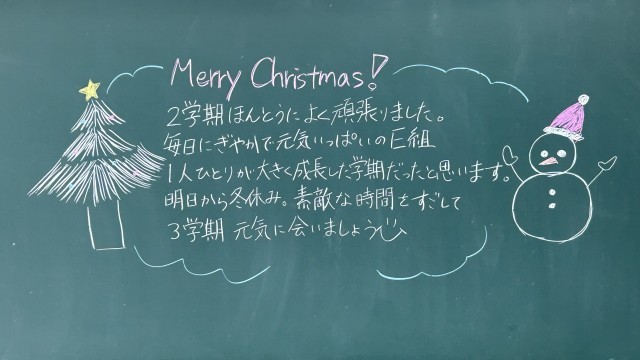 Merry Christmas!
2学期ほんとうによく頑張りました。
毎日にぎやかで元気いっぱいのE組
1人ひとりが大きく成長した学期だったと思います。
明日から冬休み。素敵な時間をすごして
3学期 元気に会いましょう